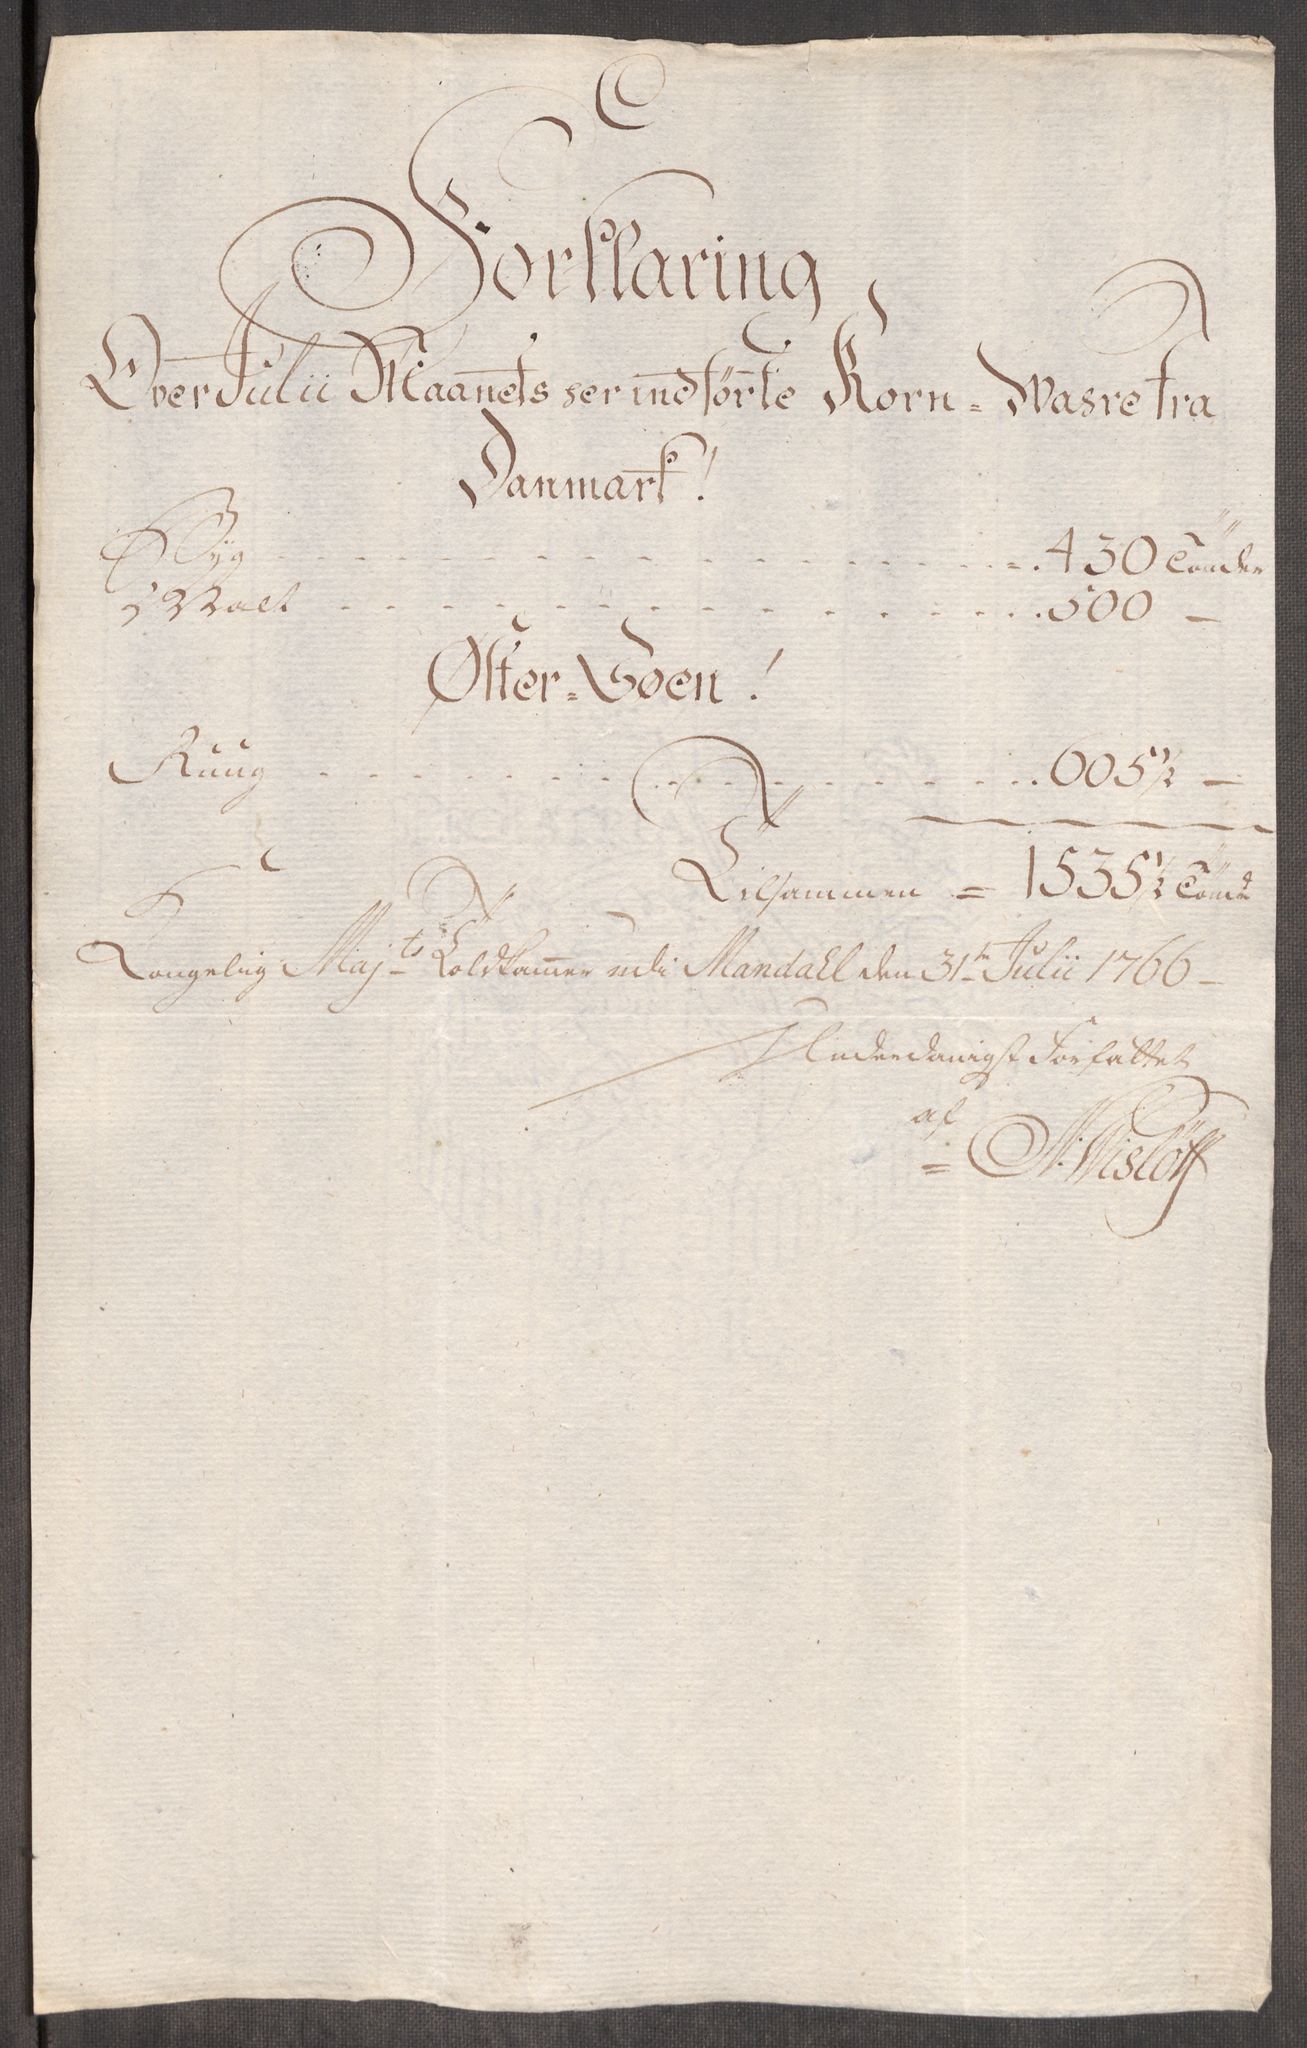 Forklaring
Over Julii Maanets her indførte Korn-Wahre fra
Danmark!
Byg . . . . . . . . . . . . 430 Tönder
Malt . . . . . . . . . . . . 500 —
Øster-Soen!
Ruug . . . . . . . . . . . . 605 1/2 —
Tilsammen = 1535 1/2 Tönd
Kongelig Majts Toldkammer udi Mandahl den 31te Julii 1766 —
Underdanigst Forfattet
af
= N. Wislöff